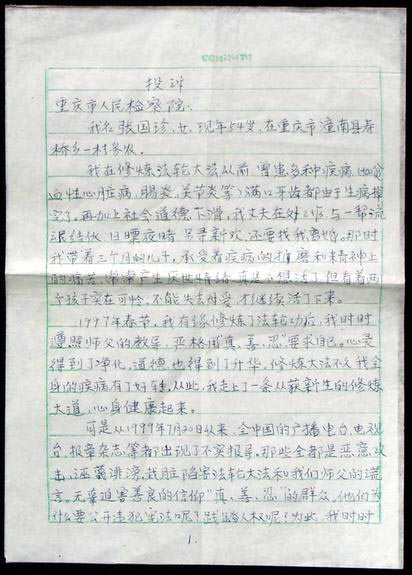 投诉
重庆市人民检察院:
我名张国珍,女,现年54岁,在重庆市潼南县寿
桥乡一村务农。
我在修炼法轮大法以前,曾患多种疾病(如贫
血性心脏病,肠炎,关节炎等)满口牙齿都由于生病掉
完了,再加上社会道德下滑,我丈夫在外工作与一帮流
氓结伙,日嫖夜赌,另寻新欢,还要找我离婚。那时
我带着三个月的儿子,承受着疾病的折磨和精神上
的痛苦,常常产生厌世情绪,真是不想活了,但看着两
个孩子实在可怜,不能失去母爱,才继续活了下来。
1997年春节,我有缘修炼了法轮功后,我时时
遵照师父的教导,严格用“真、善、忍”要求自己。心灵
得到了净化,道德也得到了升华,修炼大法不久我全
身的疾病有了好转,从此,我走上了一条从获新生的修炼
大道,心身健康起来。
可是从1999年7月20日以来,全中国的广播电台,电视
台,报章杂志等都出现了不实报导,那些全都是恶意攻
击,诬蔑诽谤,栽脏陷害法轮大法和我们师父的谎
言。无辜迫害善良的信仰“真、善、忍”的群众,他们为
什么要公开违犯宪法呢?践踏人权呢?为此,我时时
1.